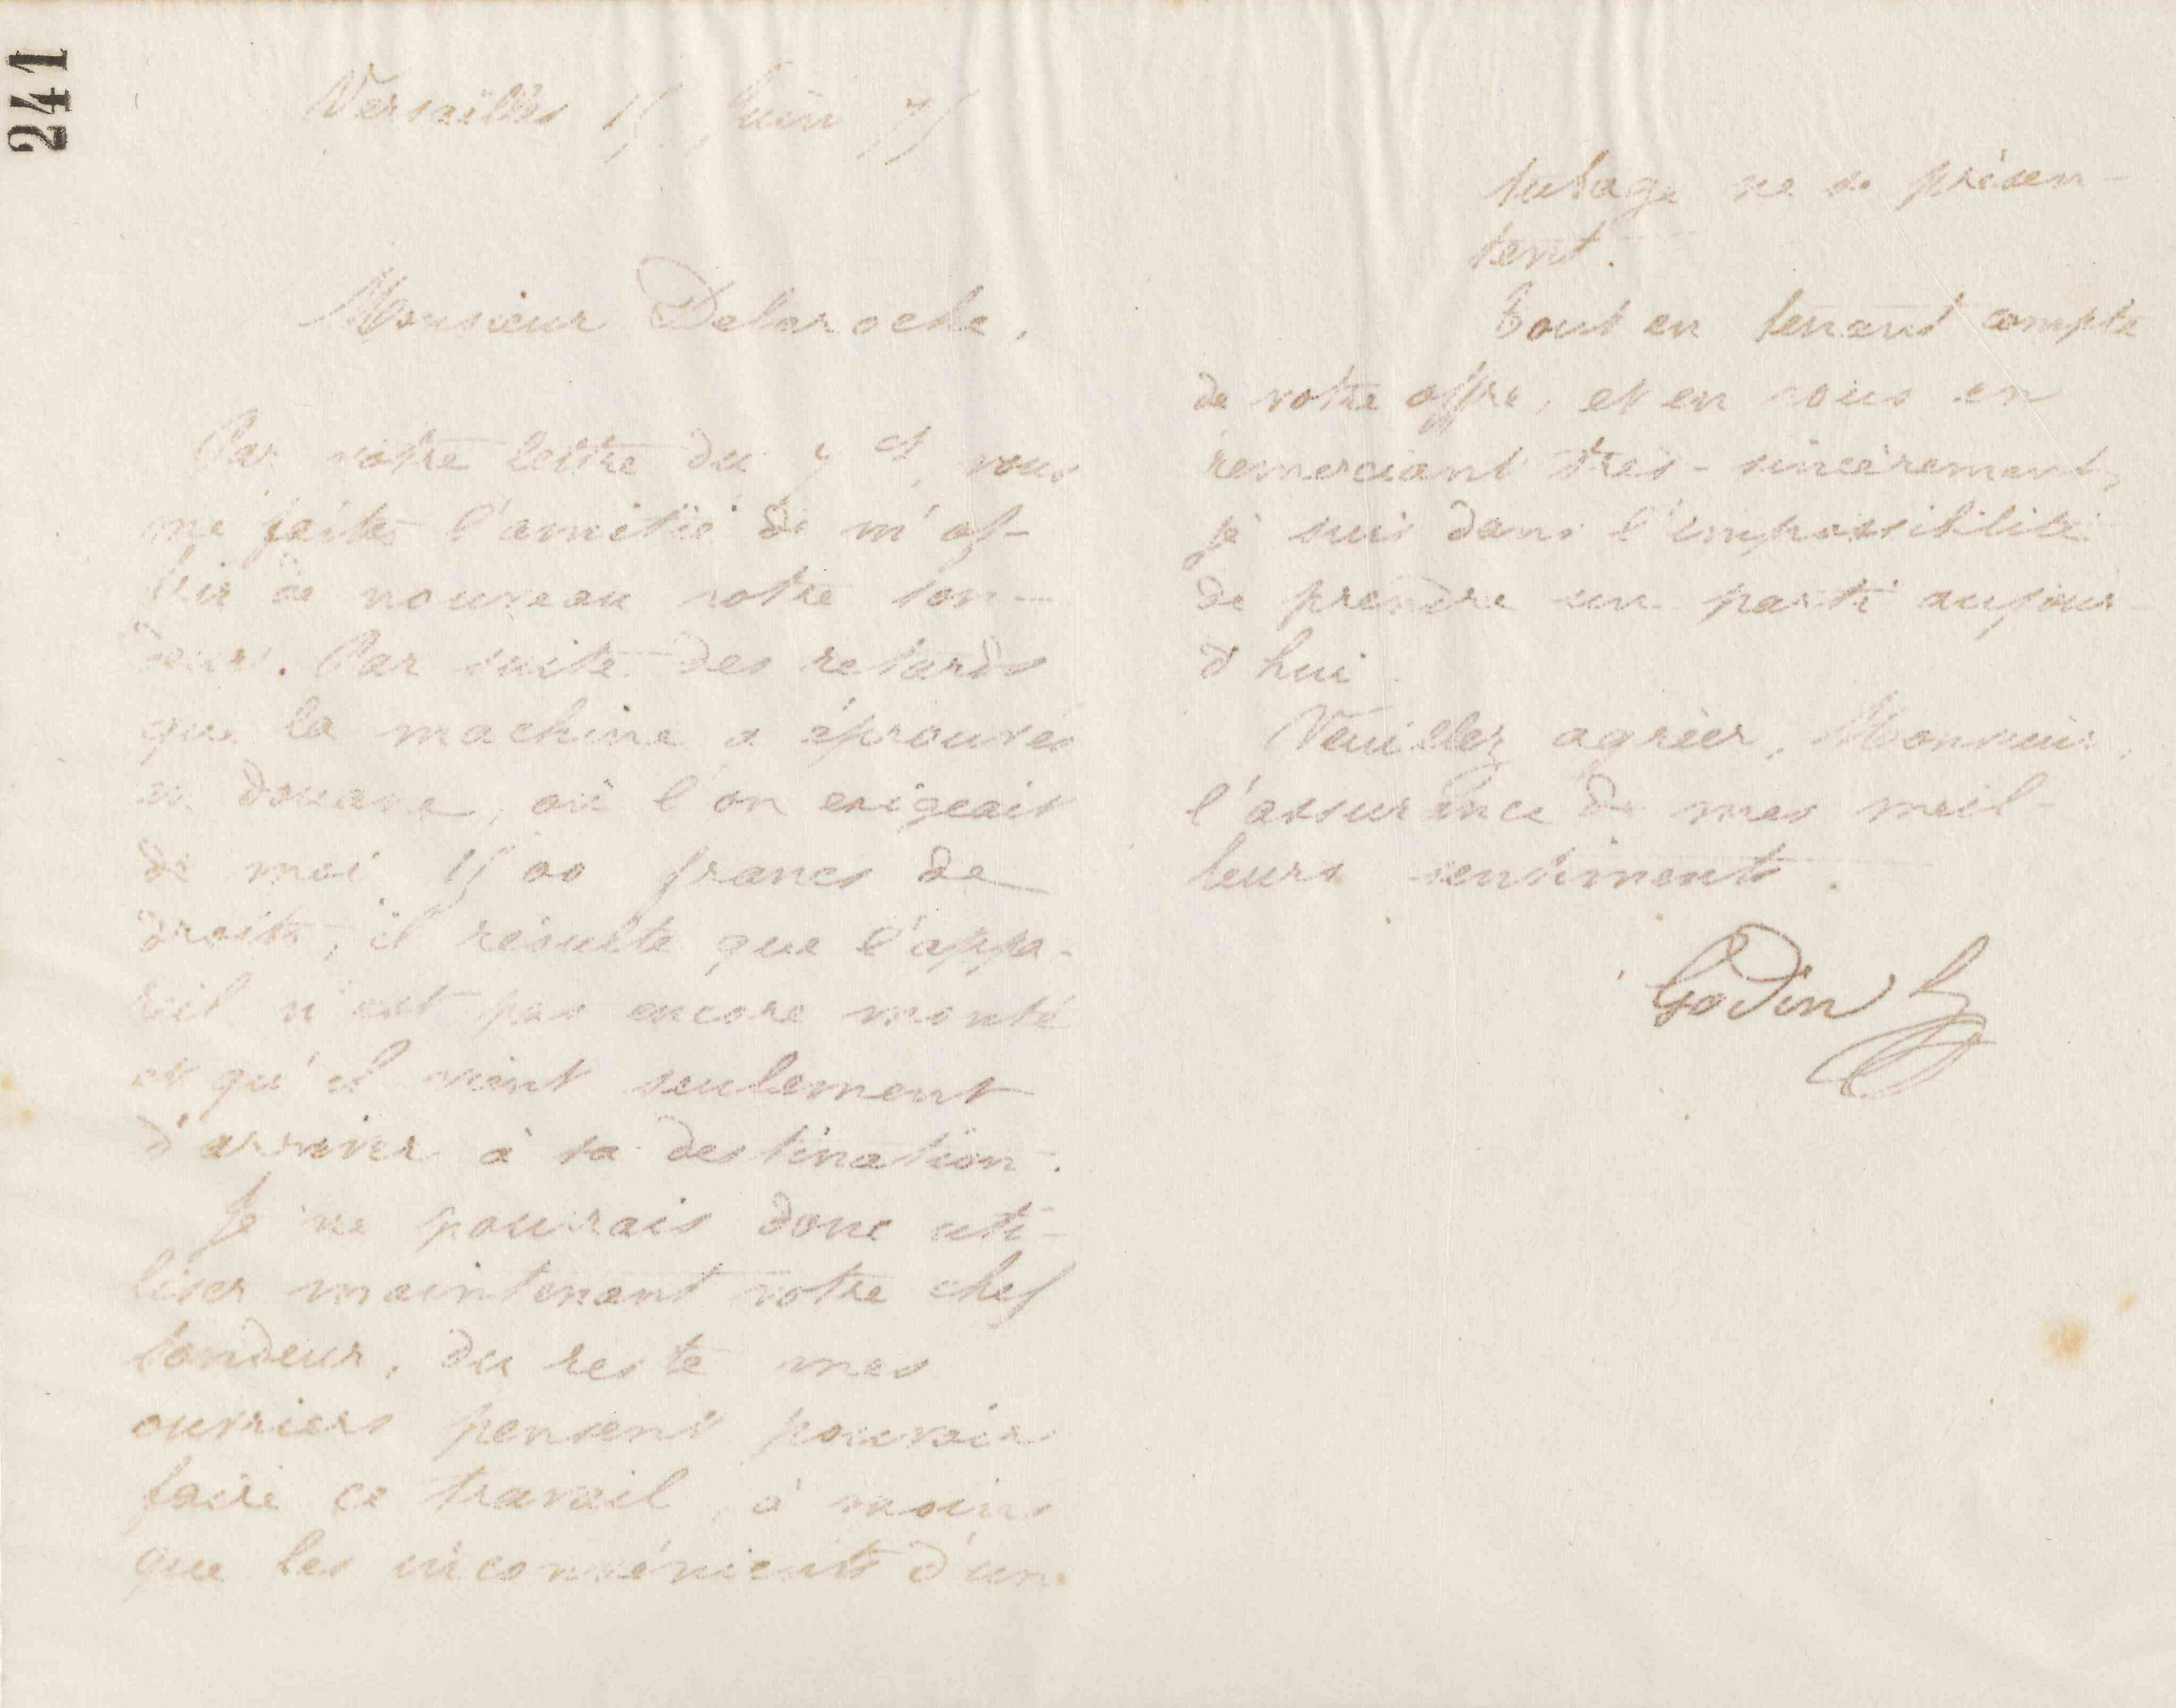 241
Versailles 15 Juin 75
Monsieur Delaroche,
Par votre lettre du 7 ct, vous
me faites l'amitié de m'of-
frir de nouveau votre son-
deur. Par suite des retards
que la machine a éprouvés
en douane, où l'on exigeait
de moi 1500 francs de
droits, il résulte que l'appa-
reil n'est pas encore monté
et qu'il vient seulement
d'arriver à sa destination.
Je ne pourrais donc uti-
liser maintenant votre chef
sondeur, du reste mes
ouvriers pensent pouvoir
faire ce travail, à moins
que les inconvénients d'un
tubage ne se présen-
tent.
Tout en tenant compte
de votre offre, et en vous en
remerciant très-sincèrement,
je suis dans l'impossibilité
de prendre un parti aujour-
d'hui.
Veuillez agréer, Monsieur,
l'assurance de mes meil-
leurs sentiments.
Godin